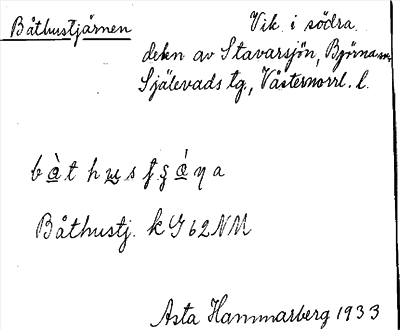 Båthustjärnen
Vik i södra
delen av Stavarsjön, Björna sn,
Själevads tg., Västernorrl. l.
Båthustj. k G 62 NM
Asta Hammarberg 1933